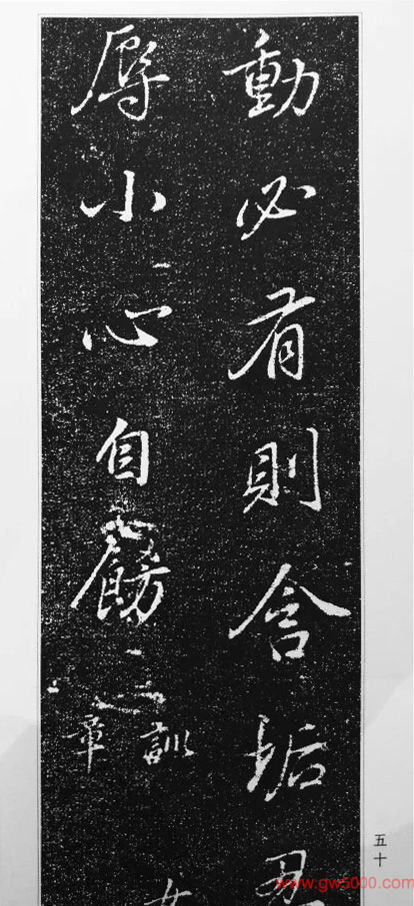 動必有則含垢
辱小心自飭
訓
章
五十
www.gw5000.com